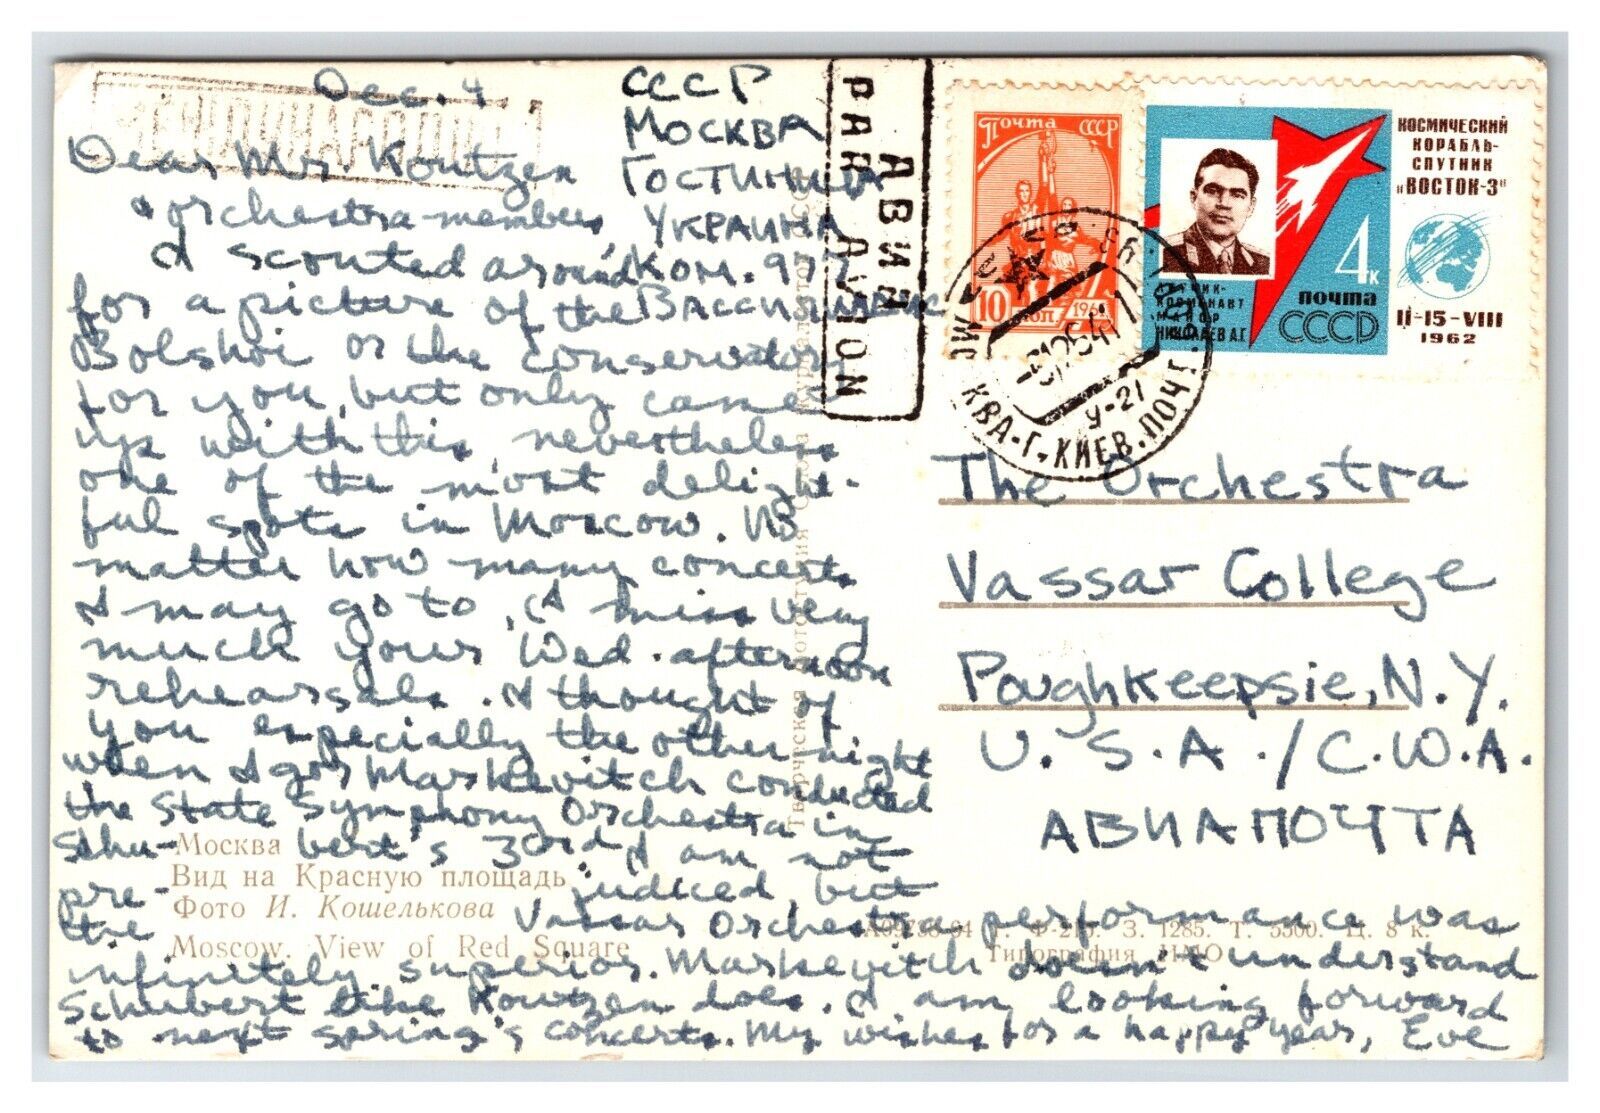 Dec. 4
СССР
МОСКВА
ГОСТИНИЦА
УКРАИНА
КОМ. 977
Dear Mr. Koutzen
& orchestra-members,
I scouted around
for a picture of the
Bolshoi or the conservatory
for you, but only came
up with this, nevertheless
one of the most delight-
ful spots in Moscow. No
matter how many concerts
I may go to, I miss very
much your Wed. afternoon
rehearsals. I thought of
you especially the other night
when Igor Markevitch conducted
the State Symphony Orchestra in
Schu- bert's 3rd. I am not
pre- judiced, but
the Vassar Orchestra performance was
infinitely superior. Markevitch doesn't understand
Schubert like Koutzen does. I am looking forward
to next spring's concerts. My wishes for a happy year, Eve
Москва
Вид на Красную площадь
Фото И. Кошелькова
Moscow. View of Red Square
МЕЖДУНАРОДНОЕ
АВИА
PAR AVION
Почта СССР
10 коп 1961
КОСМИЧЕСКИЙ
КОРАБЛЬ-
СПУТНИК
"ВОСТОК-3"
4к
почта
СССР
ЛЕТЧИК-
КОСМОНАВТ
МАЙОР
НИКОЛАЕВ А.Г.
11-15-VIII
1962
МОСКВА-Г. КИЕВ. ПОЧТ.
9-21
The Orchestra
Vassar College
Poughkeepsie, N.Y.
U.S.A./С.Ш.А.
АВИАПОЧТА
А09738-64 г. Ф-219. З. 1285. Т. 5500. Ц. 8 к.
Типография